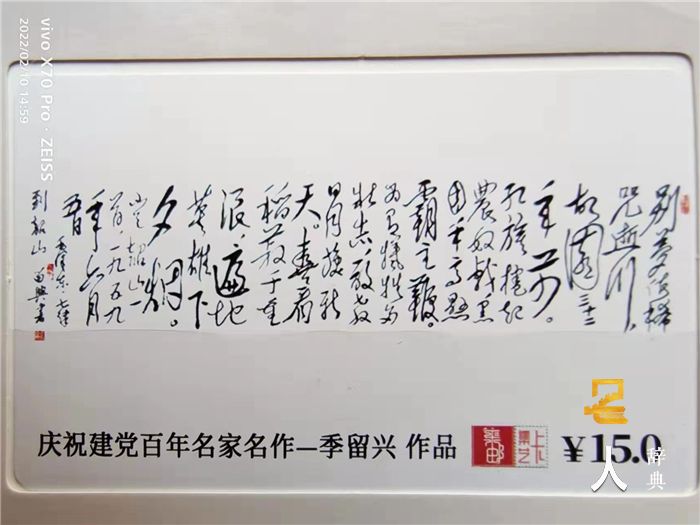 别梦依稀
咒逝川,
故園三十二
年前。
红旗捲起
農奴戟黑
手高懸
霸主鞭。
为有犧牲多
壮志,敢教
日月换新
天。喜看
稻菽千重
浪,遍地
英雄下
夕烟。
韶山一
首一九五九
年六月
毛泽东七律
到韶山 留興書
庆祝建党百年名家名作—季留兴 作品
集邮
上下集艺
¥15.0
人 辞典
vivo X70 Pro · ZEISS
2022/02/10 14:59